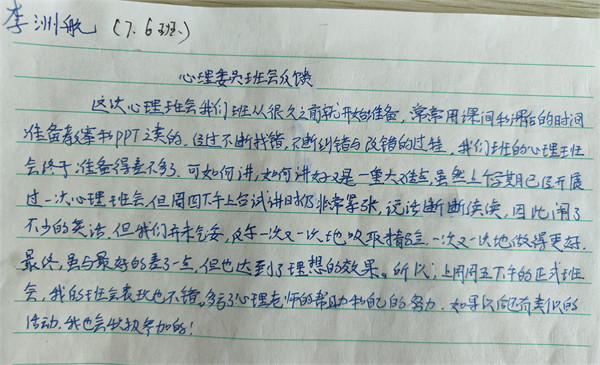 李洲航 (7.6班)
心理委员班会反馈
这次心理班会我们班从很久之前就开始准备,常常用课间和课后的时间
准备教案和PPT之类的。经过不断找错,不断纠错与改错的过程,我们班的心理班
会终于准备得差不多了。可如何讲,如何讲好又是一重大难点,虽然上学期已经开展
过一次心理班会,但周四下午上台试讲时仍非常紧张,说话断断续续,因此闹了
不少的笑话,但我们并未气妥,反而一次又一次地吸取精验,一次又一次地做得更好
最终,虽与最好的差了一点,但也达到了理想的效果。所以;上周周五下午的正式班
会,我的班会表现也不错,多亏了心理老师的帮助和自己的努力。如果以后还有类似的
活动,我也会积极参加的!